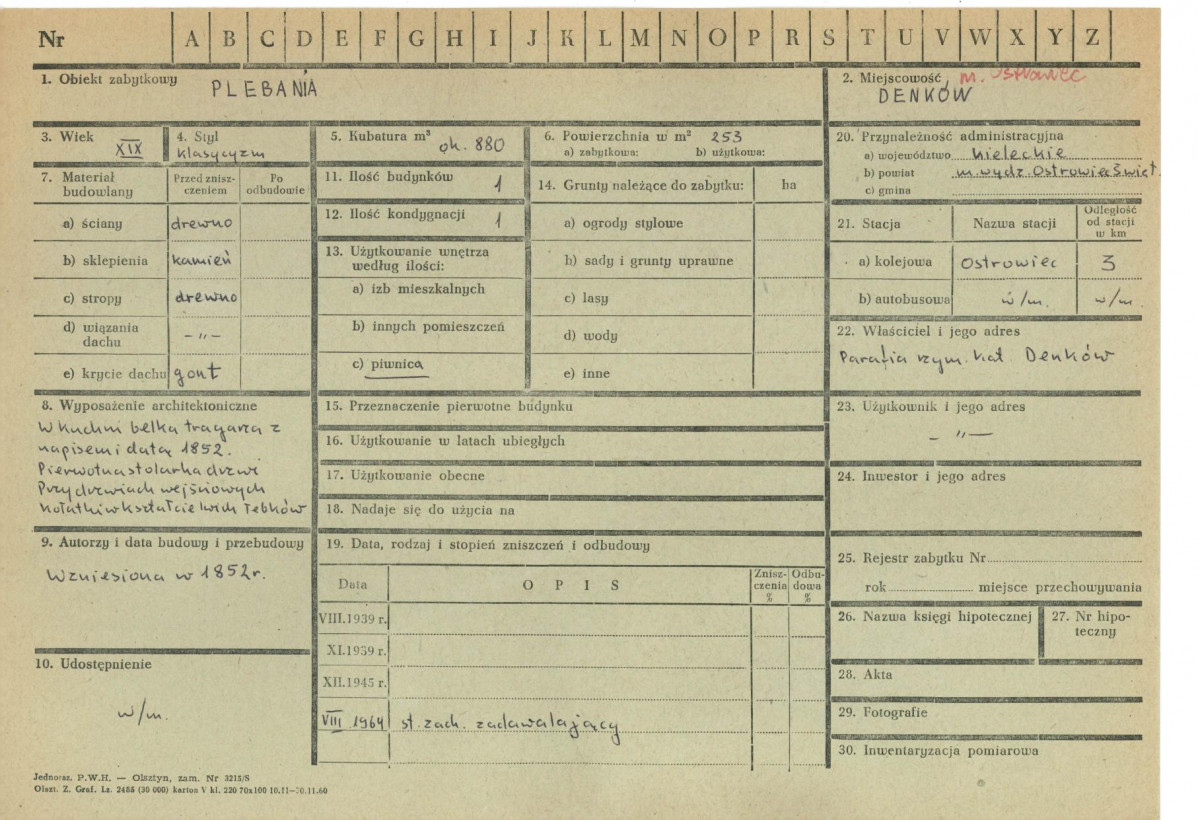 Nr A B C D E F G H I J K L M N O P R S T U V W X Y Z
1. Obiekt zabytkowy PLEBANIA
2. Miejscowość m. Ostrowiec
DENKÓW
3. Wiek XIX
4. Styl klasycyzm
5. Kubatura m³ ok. 880
6. Powierzchnia w m² 253
a) zabytkowa: b) użytkowa:
20. Przynależność administracyjna
a) województwo kieleckie
b) powiat m. wydz. Ostrowiec Święt.
c) gmina
7. Materiał budowlany
Przed zniszczeniem
Po odbudowie
a) ściany drewno
b) sklepienia kamień
c) stropy drewno
d) wiązania dachu -〃-
e) krycie dachu gont
11. Ilość budynków 1
12. Ilość kondygnacji 1
13. Użytkowanie wnętrza
według ilości:
a) izb mieszkalnych
b) innych pomieszczeń
c) piwnica
14. Grunty należące do zabytku: ha
a) ogrody stylowe
b) sady i grunty uprawne
c) lasy
d) wody
e) inne
21. Stacja Nazwa stacji Odległość od stacji w km
a) kolejowa Ostrowiec 3
b) autobusowa w/m. w/m.
22. Właściciel i jego adres
Parafia rzym. kat. Denków
8. Wyposażenie architektoniczne
W kuchni belka tragarza z
napisem i datą 1852.
Pierwotna stolarka drzwi
Przy drzwiach wejściowych
kołatki w kształcie lwich łebków
9. Autorzy i data budowy i przebudowy
Wzniesiona w 1852 r.
10. Udostępnienie
w/m.
15. Przeznaczenie pierwotne budynku
16. Użytkowanie w latach ubiegłych
17. Użytkowanie obecne
18. Nadaje się do użycia na
19. Data, rodzaj i stopień zniszczeń i odbudowy
Data O P I S Zniszczenia % Odbudowa %
VIII.1939 r.
XI.1939 r.
XII.1945 r.
VIII 1964 st. zach. zadawalający
23. Użytkownik i jego adres
- 〃 -
24. Inwestor i jego adres
25. Rejestr zabytku Nr
rok miejsce przechowywania
26. Nazwa księgi hipotecznej
27. Nr hipoteczny
28. Akta
29. Fotografie
30. Inwentaryzacja pomiarowa
Jednoraz. P.W.H. — Olsztyn, zam. Nr 3215/S
Olszt. Z. Graf. Lz. 2455 (30 000) karton V kl. 220 70x100 10.11—30.11.60